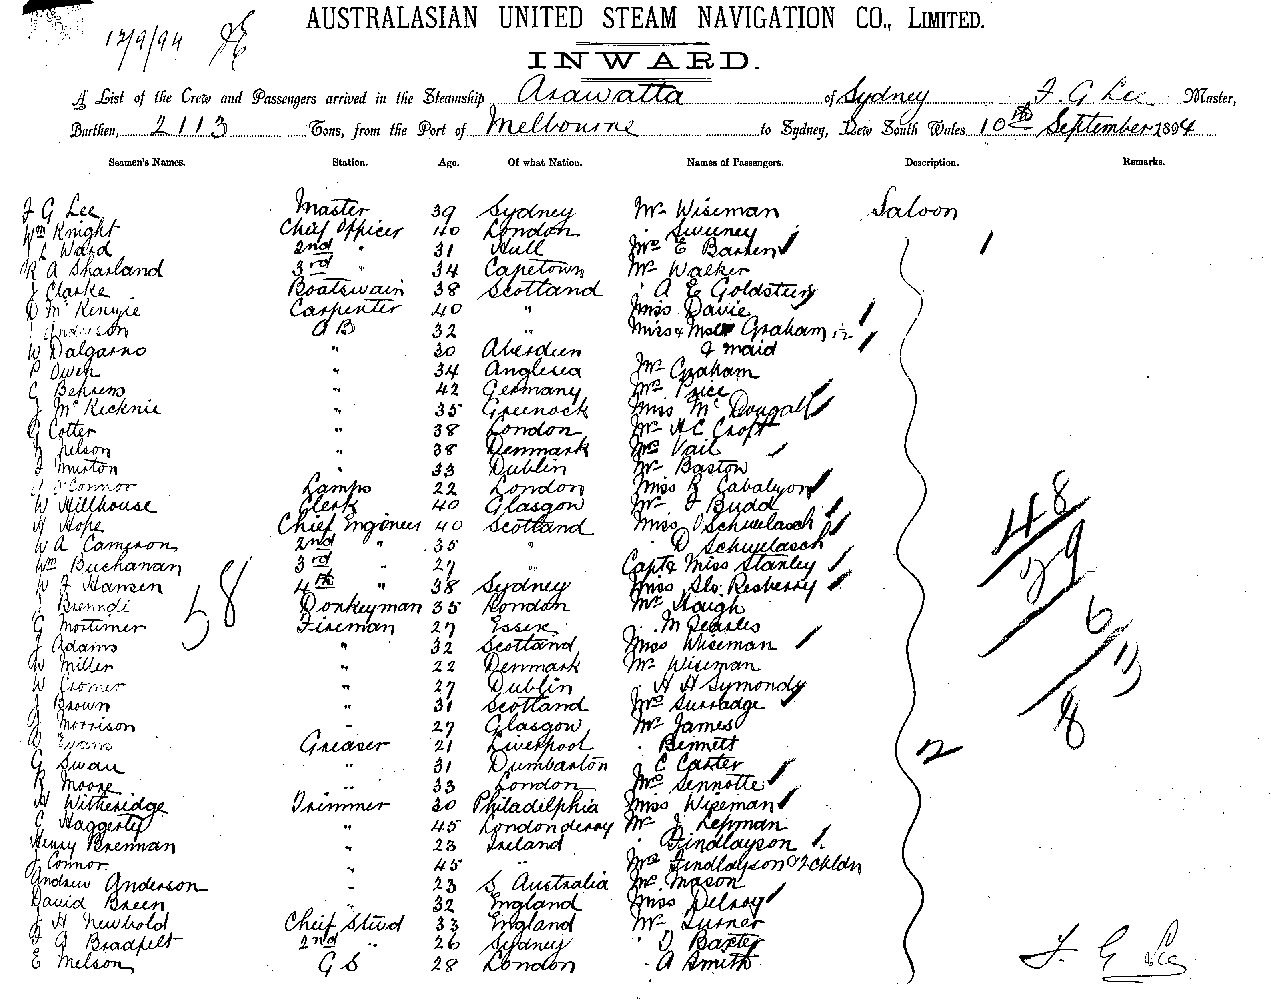 12/9/94
AUSTRALASIAN UNITED STEAM NAVIGATION CO., LIMITED.
INWARD.
A List of the Crew and Passengers arrived in the Steamship Arawatta of Sydney F. G Lee Master,
Burthen, 2113 Tons, from the Port of Melbourne to Sydney, New South Wales 10th September 1894
Seamen's Names. Station. Age. Of what Nation. Names of Passengers. Description. Remarks.
F G Lee Master 39 Sydney Mr Wiseman Saloon
Wm Knight Chief Officer 40 London " Sweeney
L Ward 2nd " 31 Hull Mrs E Barren 1
R A Sharland 3rd " 34 Capetown Mr Walker
J Clarke Boatswain 38 Scotland " A E Goldstein
D McKenzie Carpenter 40 " Miss Davie
Anderson A B 32 " Miss & Mstr Graham
W Dalgarno " 30 Aberdeen & maid
P Owen " 34 Anglesea Mr Graham
G Behrens " 42 Germany Mrs Price
J McKechnie " 35 Greenock Miss McDougall
G Cotter " 38 London Mr H C Croft
Nelson " 38 Denmark Mrs Vail
J Murton " 33 Dublin Mr Baston
O'Connor Lamps 22 London Miss Cabalyon
W Hillhouse Clerk 40 Glasgow Mr J Budd
Hope Chief Engineer 40 Scotland Miss O Schuelasch
W A Cameron 2nd " 35 " D Schuelasch
Wm Buchanan 3rd " 27 " Capt & Miss Stanley
W J Hansen 4th " 38 Sydney Miss Slo. Resberry
Brenndi Donkeyman 35 London Mr Haugh
G Mortimer Fireman 27 Essex " M Searles
J Adams " 32 Scotland Miss Wiseman
W Miller " 22 Denmark Mr Wiseman
W Cromer " 27 Dublin " H H Symonds
J Brown " 31 Scotland Mrs Surradge
Morrison " 27 Glasgow Mr James
W Evans Greaser 21 Liverpool " Binnett
G Swan " 31 Dumbarton " C Carter 2
R Moore " 33 London Mrs Sennotte
H Witheridge Trimmer 30 Philadelphia Miss Wiseman
C Haggerty " 45 Londonderry Mr J Lepman
Henry Brennan " 23 Ireland " Findlayson
J Connor " 45 " Mrs Findlayson & 2 Chldn
Andrew Anderson " 23 S Australia Mr Mason
David Breen " 32 England Miss Delroy
J H Newbold Chief Stwd 33 England Mr Turner
F A Bradfelt 2nd " 26 Sydney " D Baxter
E Melson G S 28 London " A Smith
58
48
29
6
13
8
F. G Lee